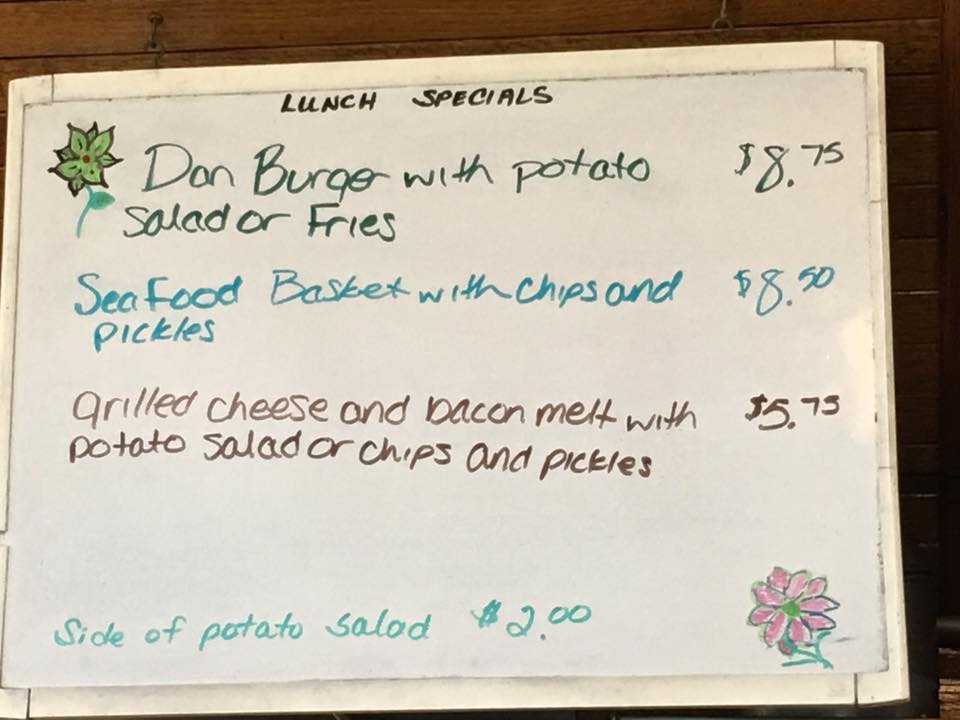 LUNCH SPECIALS
Dan Burger with potato $8.75
salad or Fries
Seafood Basket with chips and $8.50
pickles
grilled cheese and bacon melt with $5.75
potato salad or chips and pickles
Side of potato salad $2.00